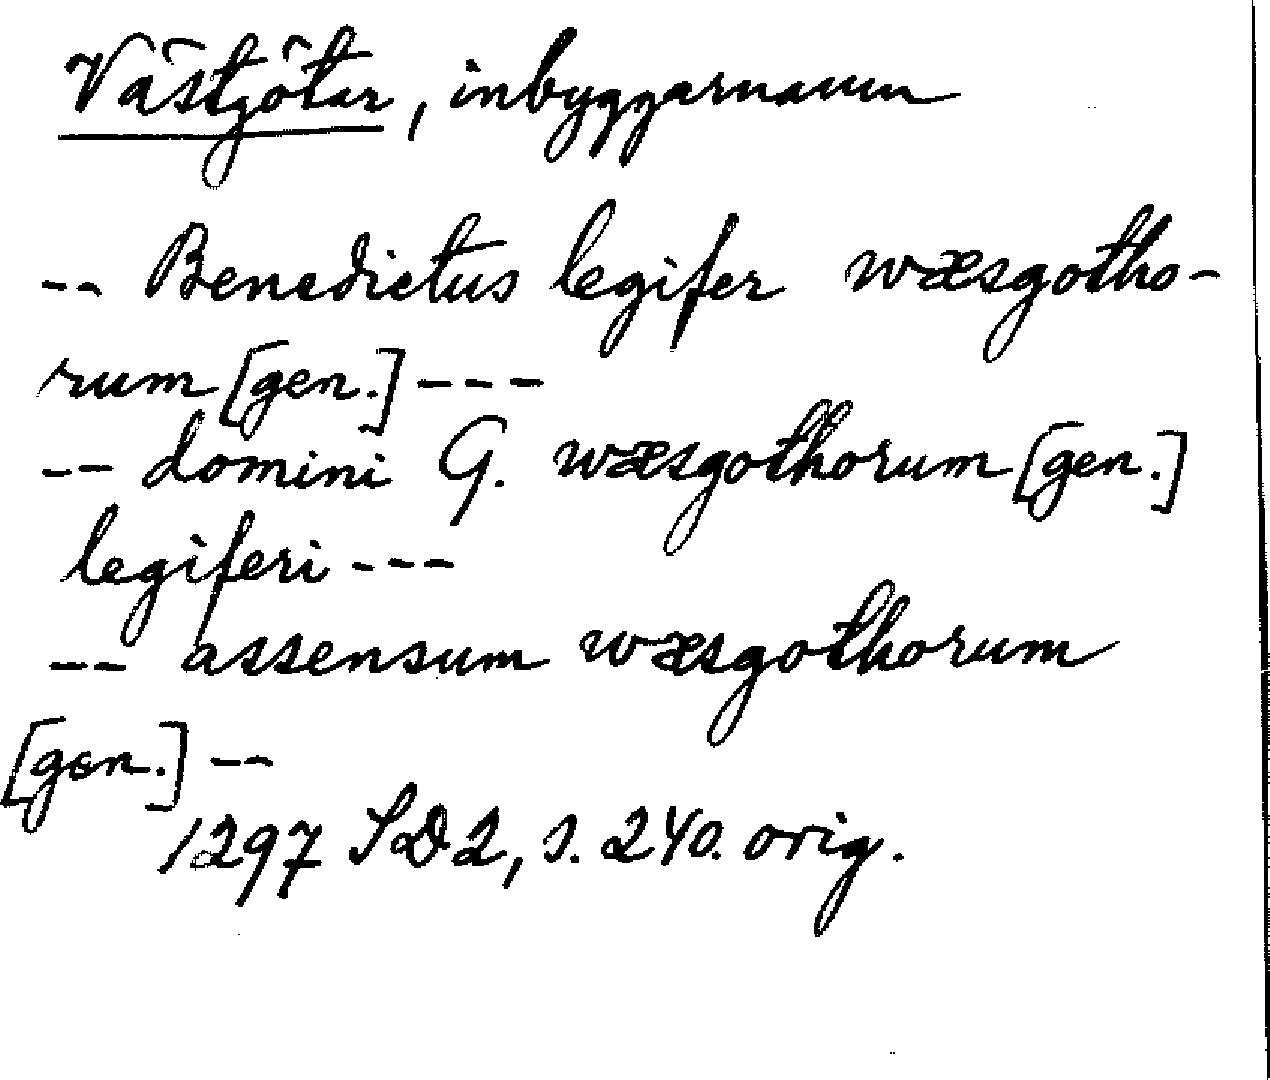 Västgötar, inbyggarnamn
-- Benedictus legifer wæsgotho-
rum [gen.] ---
-- domini G. wæsgothorum [gen.]
legiferi ---
-- assensum wæsgothorum
[gen.] --
1297 SD 2, s. 240. orig.